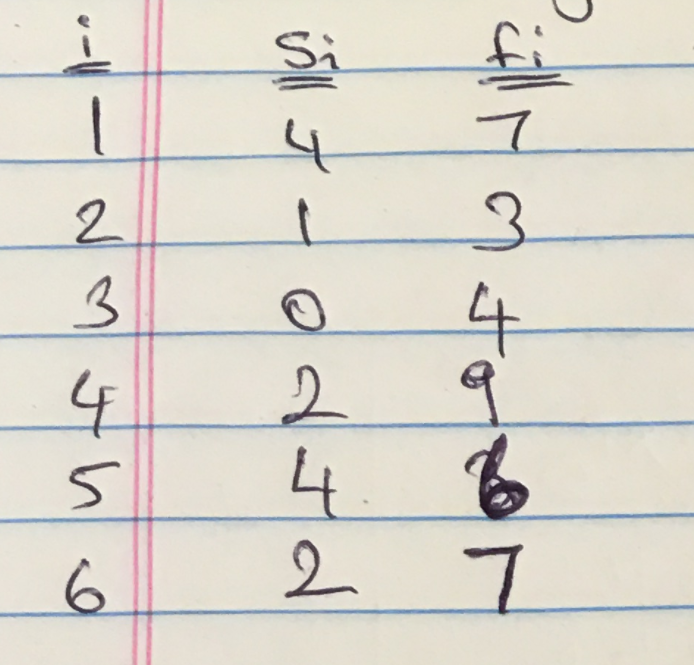 i Si fi
1 4 7
2 1 3
3 0 4
4 2 9
5 4
6 2 7